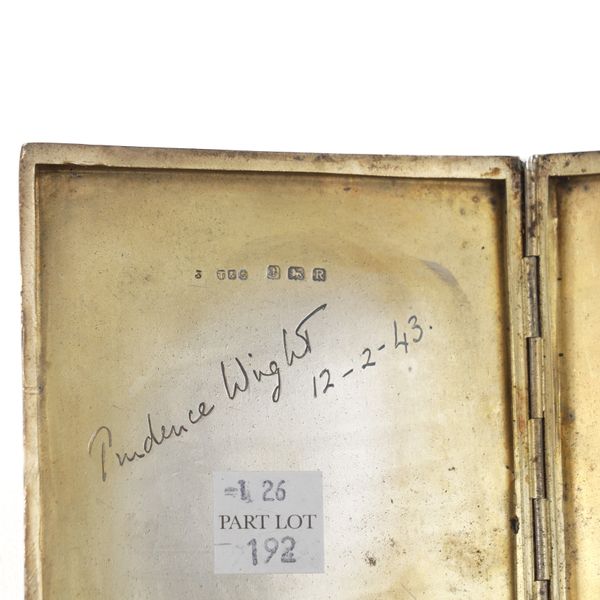 Prudence Wright
12-2-43.
-1 26
PART LOT
192